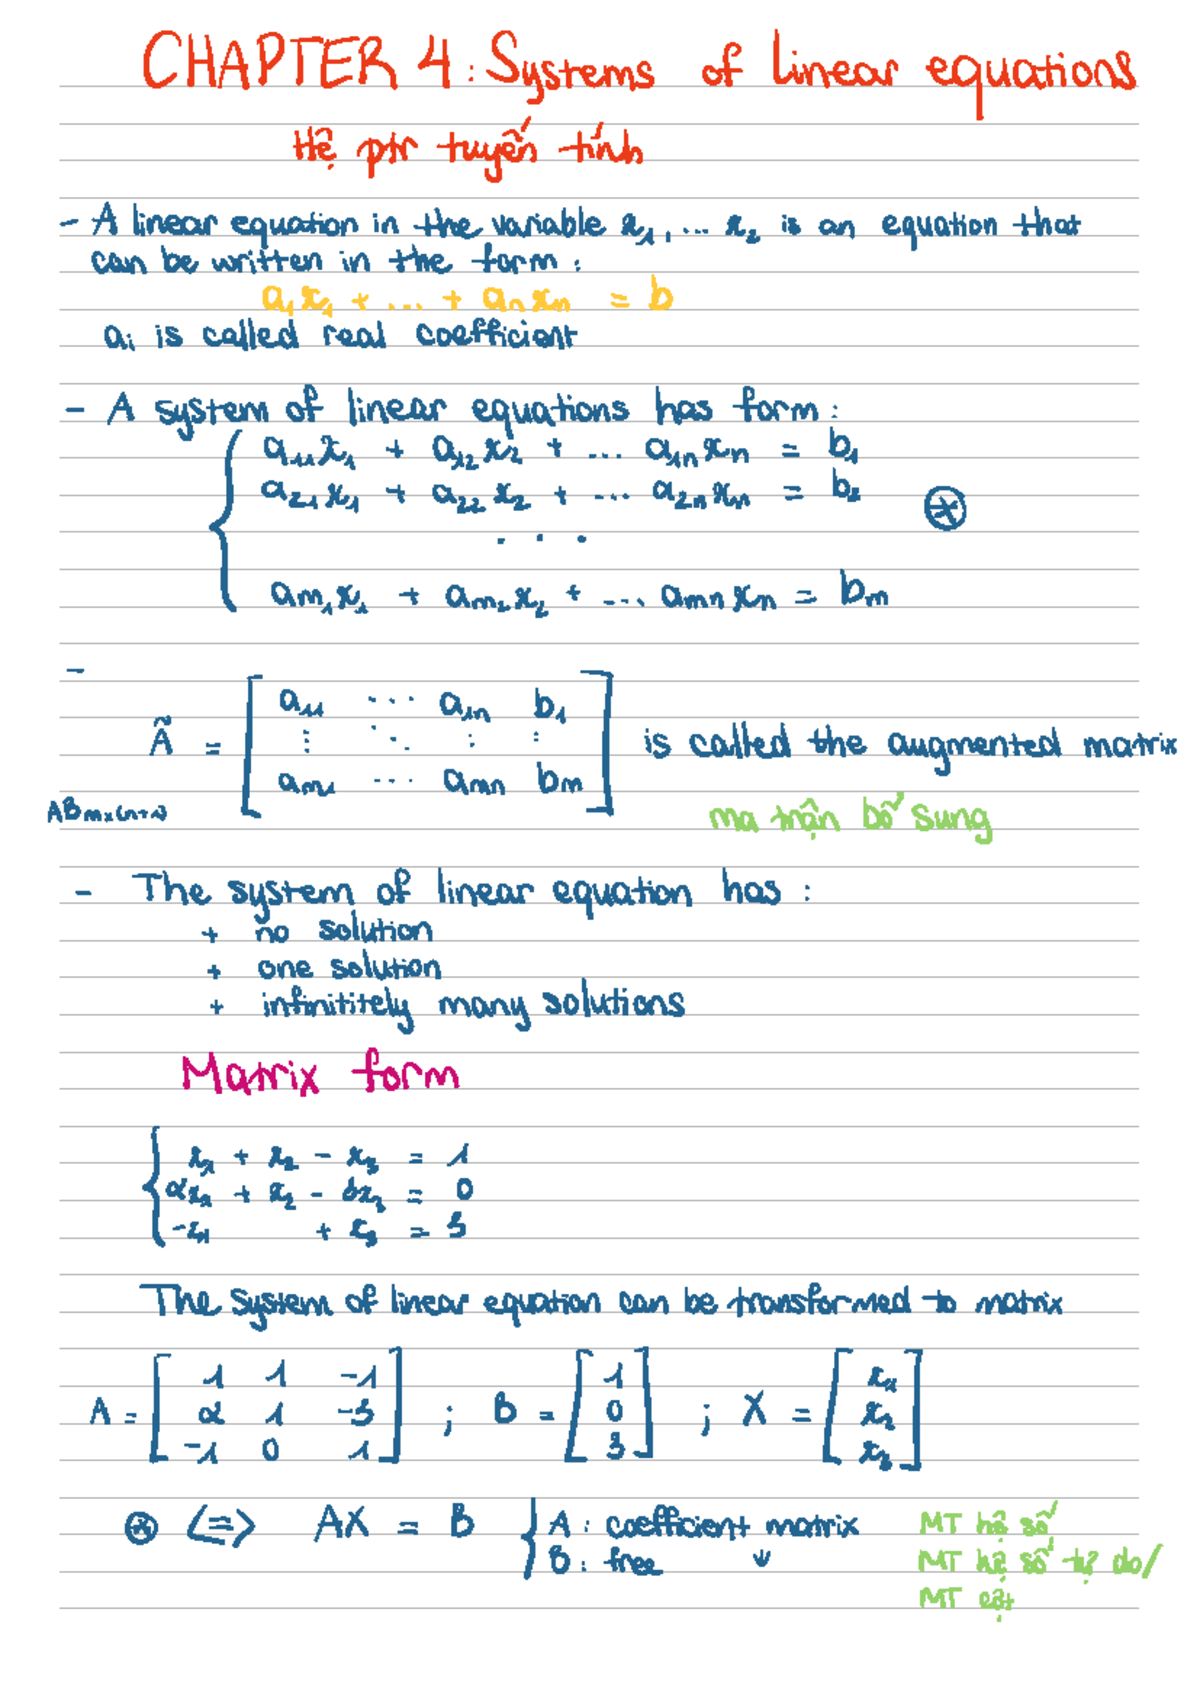 CHAPTER 4: Systems of linear equations
Hệ ptr tuyến tính
- A linear equation in the variable x₁, ... x₂ is an equation that
can be written in the form:
a₁x₁ + ... + aₙxₙ = b
aᵢ is called real coefficient
- A system of linear equations has form:
a₁₁x₁ + a₁₂x₂ + ... a₁ₙxₙ = b₁
a₂₁x₁ + a₂₂x₂ + ... a₂ₙxₙ = b₂ ⊛
. . .
aₘ₁x₁ + aₘ₂x₂ + ... aₘₙxₙ = bₘ
-
a₁₁ ... a₁ₙ b₁
Ã = [ ⋮ ⋱ ⋮ ⋮ ] is called the augmented matrix
aₘ₁ ... aₘₙ bₘ
ABₘₓ₍ₙ₊₁₎
ma trận bổ sung
- The system of linear equation has:
+ no solution
+ one solution
+ infinititely many solutions
Matrix form
x₁ + x₂ - x₃ = 1
αx₁ + x₂ - 3x₃ = 0
-x₁ + x₃ = 3
The system of linear equation can be transformed to matrix
1 1 -1 1 x₁
A = [ α 1 -3 ] ; B = [ 0 ] ; X = [ x₂ ]
-1 0 1 3 x₃
⊛ <=> AX = B { A : coefficient matrix MT hệ số
B : free ↓ MT hệ số tự do/
MT cột